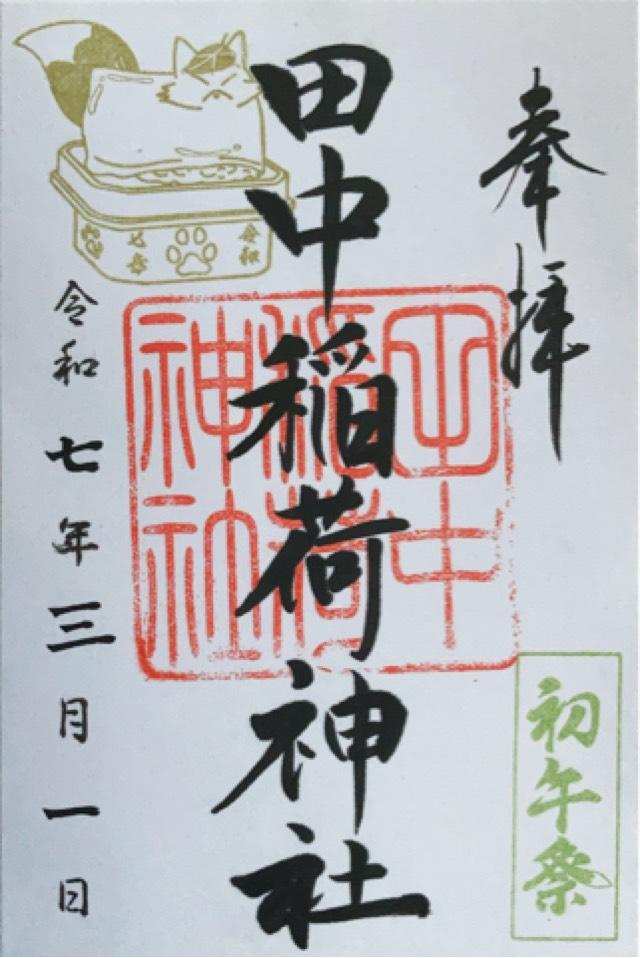 奉拝
田中稲荷神社
田中
稲荷
神社
初午祭
令和
七年
令和七年三月一日